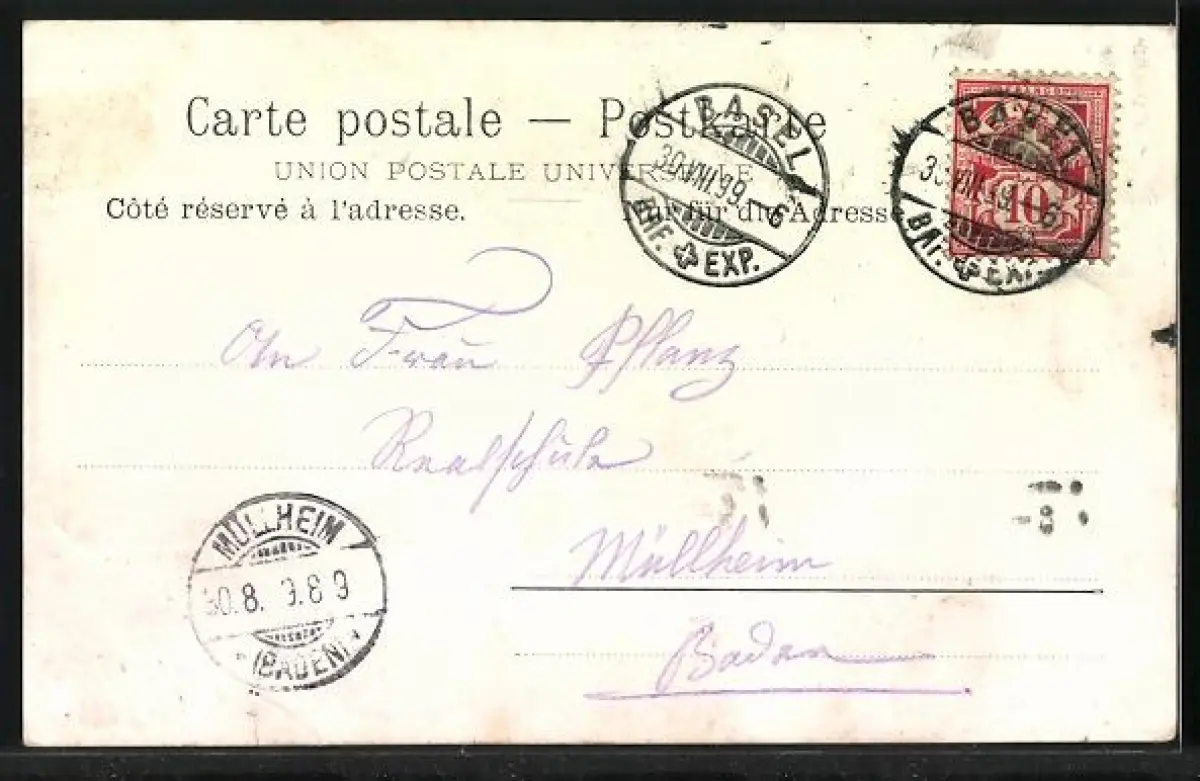 Carte postale — Postkarte
UNION POSTALE UNIVERSELLE
Côté réservé à l'adresse. Nur für die Adresse
BASEL
30.VIII.99.-6
BHF. EXP.
FRANCO
10
BASEL
30.VIII.99.-6
BHF. EXP.
An Frau Pflanz
Realschule
Müllheim
Baden
MÜLLHEIM
30.8. 9.8 9
(BADEN)